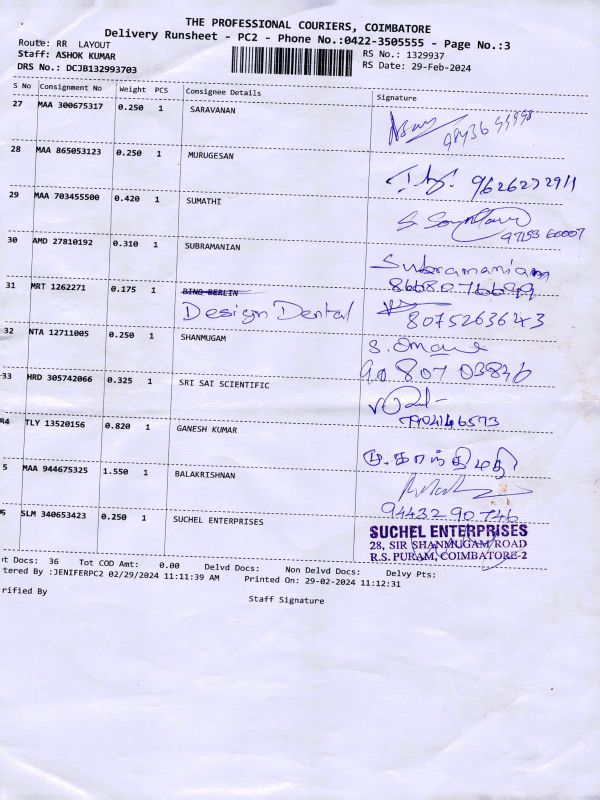 THE PROFESSIONAL COURIERS, COIMBATORE
Delivery Runsheet - PC2 - Phone No.:0422-3505555 - Page No.:3
Route: RR LAYOUT
RS No.: 1329937
Staff: ASHOK KUMAR
RS Date: 29-Feb-2024
DRS No.: DCJB132993703
S No Consignment No Weight PCS Consignee Details Signature
27 MAA 300675317 0.250 1 SARAVANAN
28 MAA 865053123 0.250 1 MURUGESAN
9626272911
29 MAA 703455500 0.420 1 SUMATHI
97153 60007
30 AMD 27810192 0.310 1 SUBRAMANIAN
Subramaniam
31 MRT 1262271 0.175 1 BING BERLIN
Design Dental 8075263643
32 NTA 12711005 0.250 1 SHANMUGAM
90 807 03846
33 HRD 305742066 0.325 1 SRI SAI SCIENTIFIC
R4 TLY 13520156 0.820 1 GANESH KUMAR
மு.காந்திமதி
5 MAA 944675325 1.550 1 BALAKRISHNAN
94432 90746
5 SLM 340653423 0.250 1 SUCHEL ENTERPRISES
SUCHEL ENTERPRISES
28, SIR SHANMUGAM ROAD
R.S. PURAM, COIMBATORE-2
t Docs: 36 Tot COD Amt: 0.00 Delvd Docs: Non Delvd Docs: Delvy Pts:
tered By :JENIFERPC2 02/29/2024 11:11:39 AM Printed On: 29-02-2024 11:12:31
rified By
Staff Signature